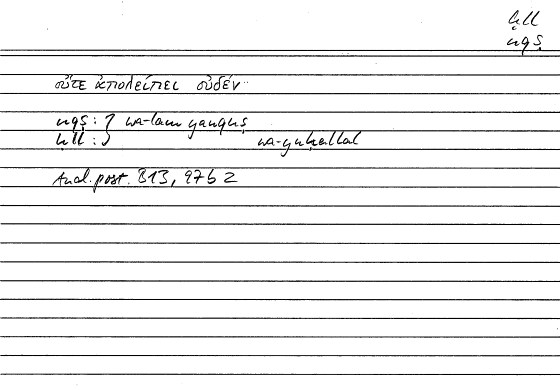 ḫll
nqṣ
οὔτε ἀπολείπει οὐδέν
nqṣ : } wa-lam yanquṣ
ḫll : } wa-yuḫallal
Anal. post. B13, 97b 2